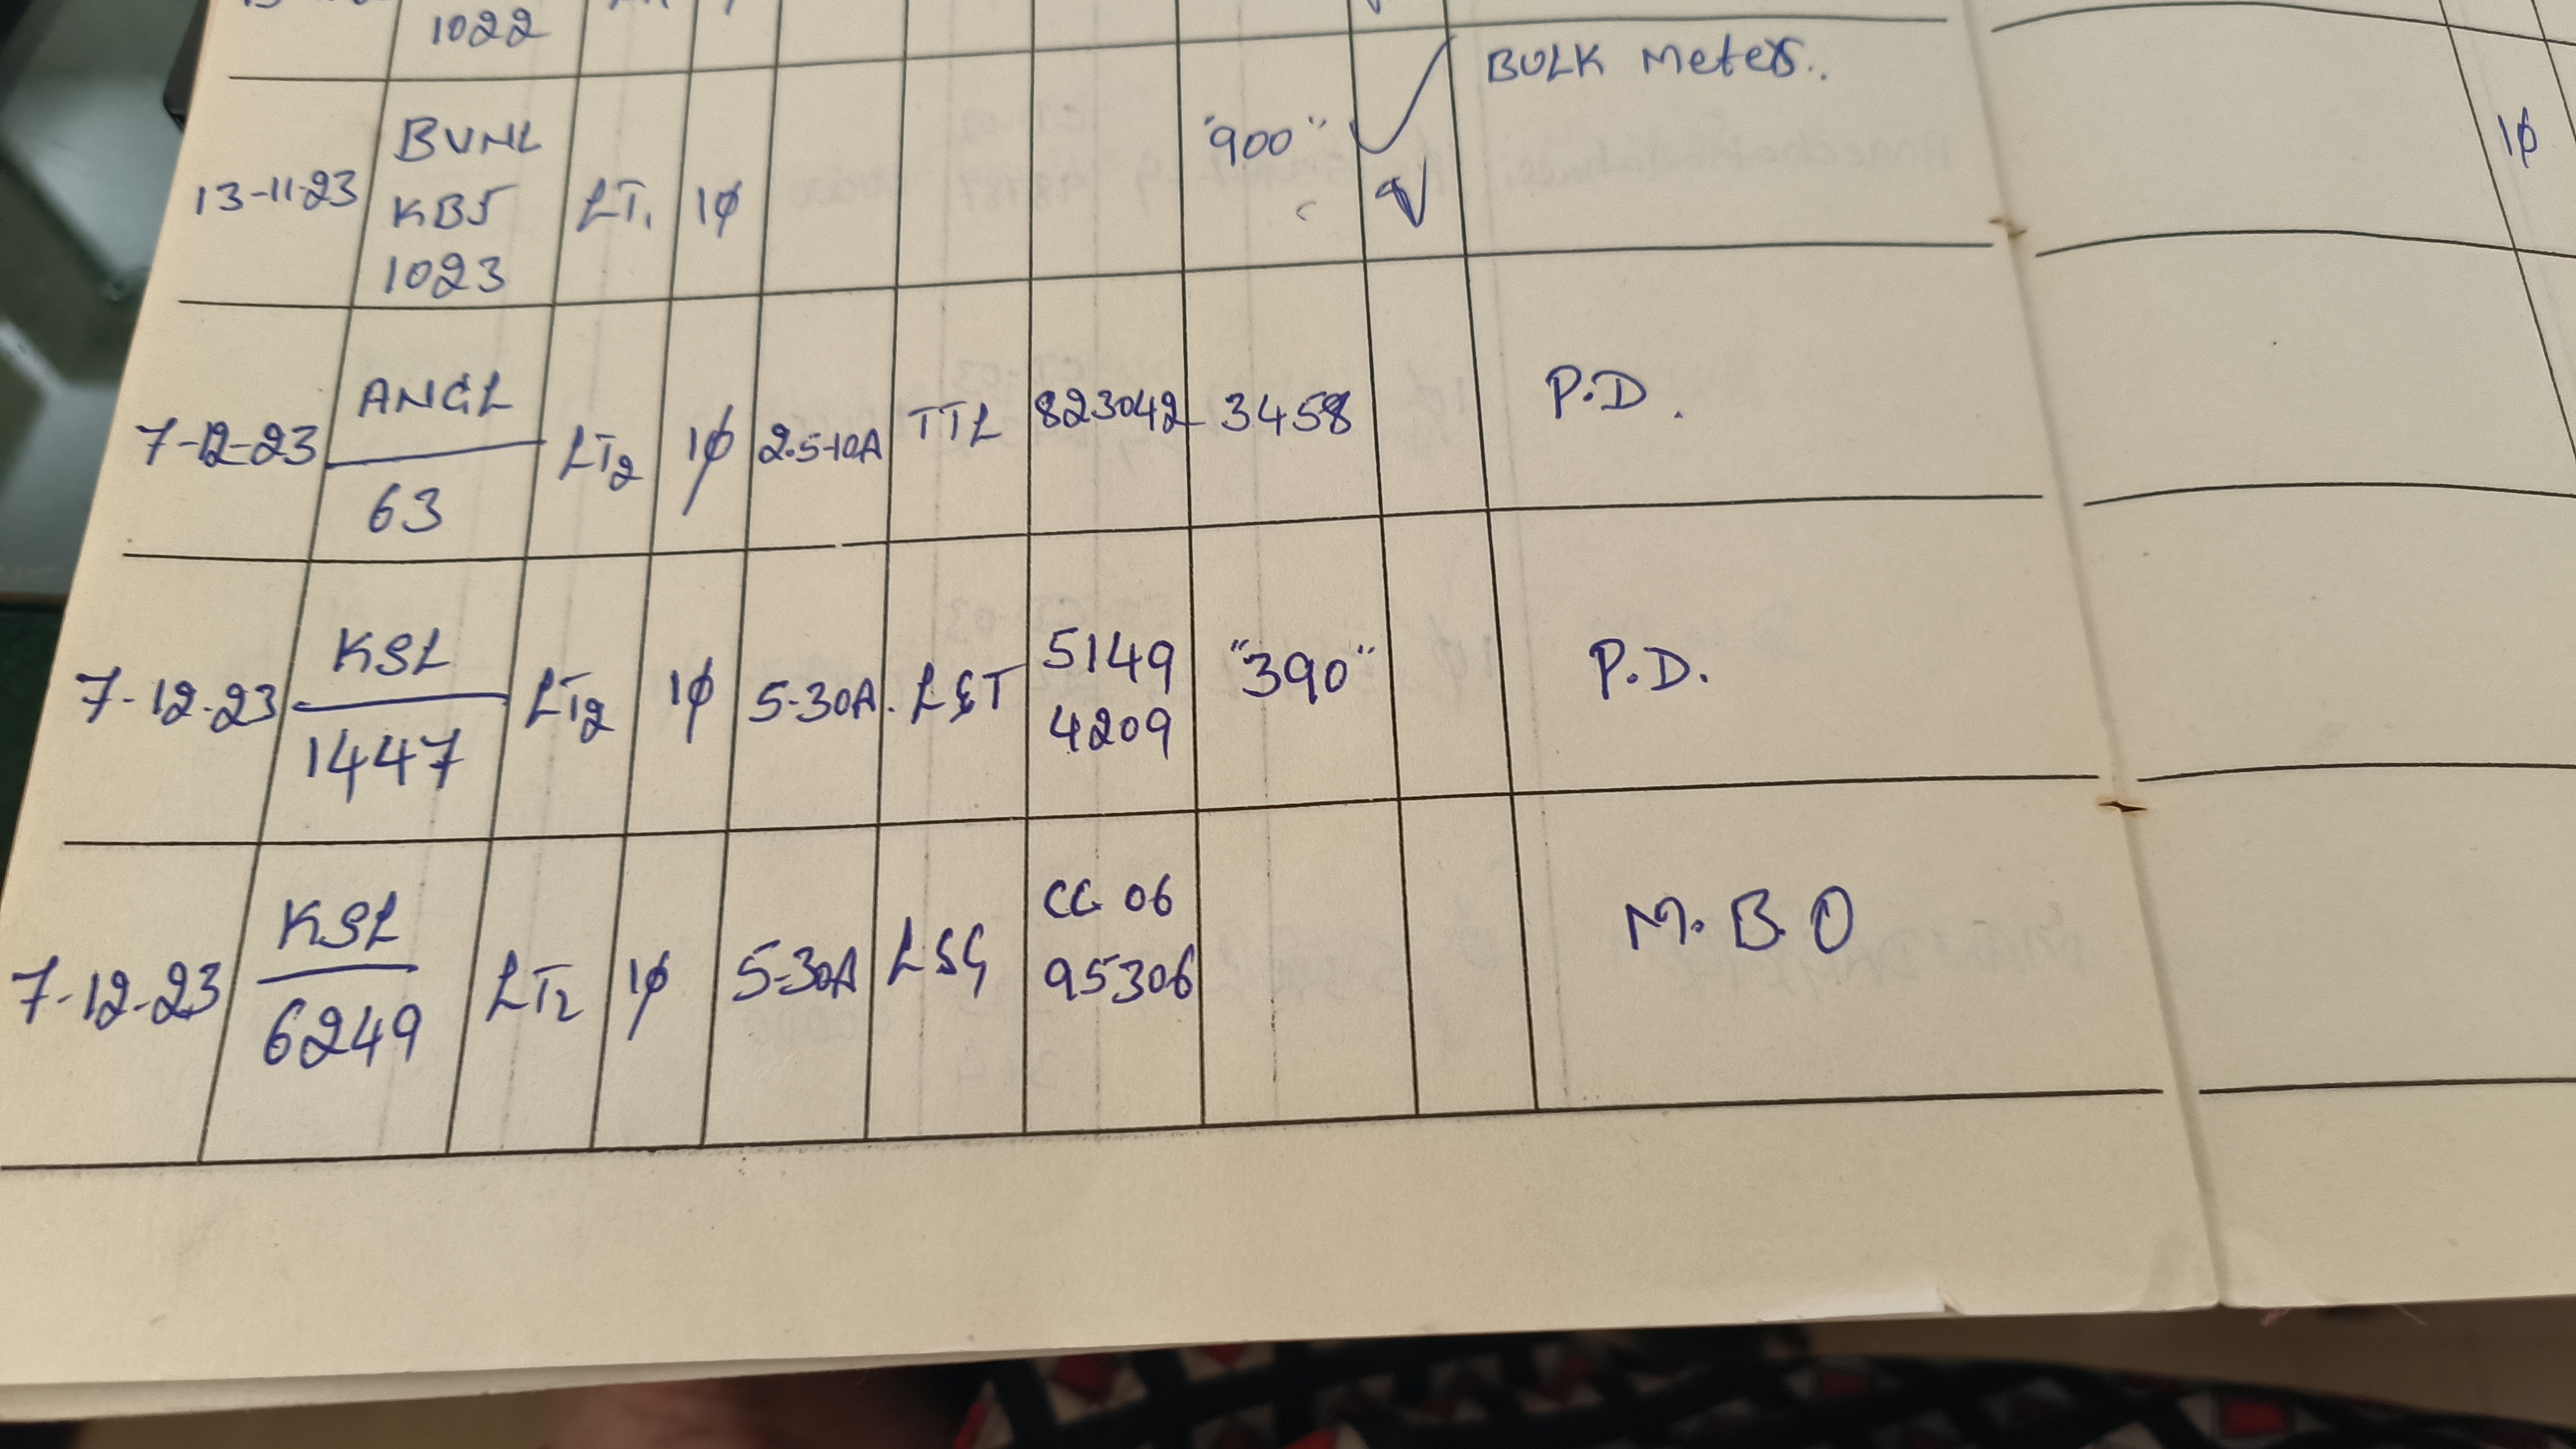 1022
BULK Meters..
13-11-23 BVNL KBJ 1023 LT1 1φ "900"
7-12-23 ANGL 63 LT2 1φ 2.5-10A TTL 823042 3458 P.D.
7-12-23 KSL 1447 LT2 1φ 5-30A. L&T 5149 4209 "390" P.D.
7-12-23 KSL 6249 LT2 1φ 5-30A LSG CG 06 95306 M.B.O
1φ